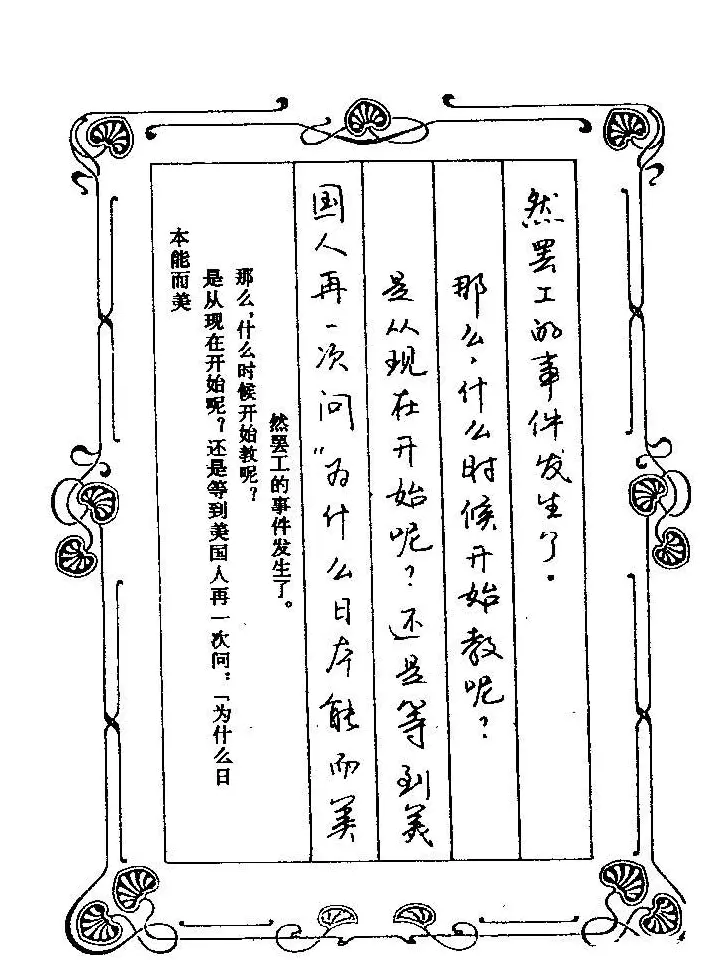 然罢工的事件发生了.
那么,什么时候开始教呢?
是从现在开始呢?还是等到美
国人再一次问"为什么日本能而美
然罢工的事件发生了。
那么,什么时候开始教呢?
是从现在开始呢?还是等到美国人再一次问:「为什么日
本能而美